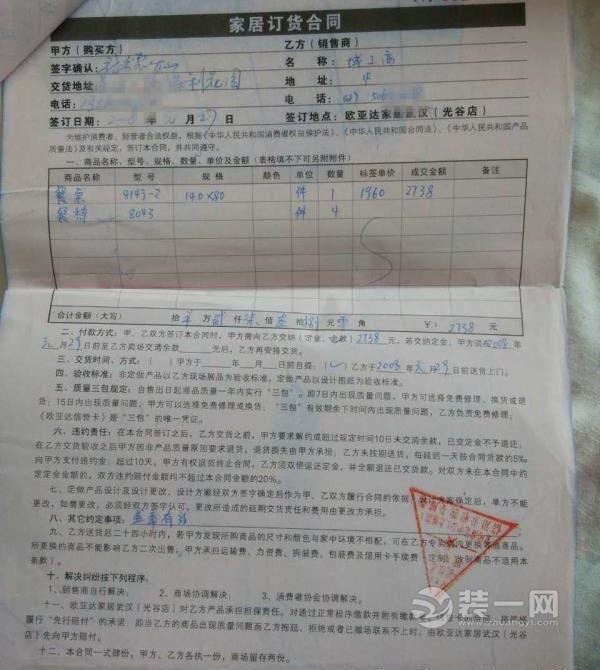 家居订货合同
甲方（购买方） 乙方（销售商）
签字确认： 名 称：
交货地址： 地 址：
电话： 电话：
签订日期： 月27日 签订地点：欧亚达家居武汉（光谷店）
为维护消费者、经营者合法权益，根据《中华人民共和国消费者权益保护法》、《中华人民共和国合同法》、《中华人民共和国产品
质量法》及有关规定，签订本合同，并共同遵守。
一、商品名称、型号、规格、数量、单价及金额（表格填不下可另附附件）
商品名称 型 号 规 格 颜色 单位 数量 标签单价 成交金额 备注
餐桌 9143-2 140×80 件 1 1960 2738
餐椅 8043 件 4
合计金额（大写） 拾 万 贰 仟 柒 佰 叁 拾 捌 元 零 角 ¥：2738 元
二、付款方式：甲、乙双方签订本合同时，甲方需向乙方交纳（定金、仓款）2738元，若交纳定金，甲方须在2008年
元月29日前至乙方卖场交清余款 元后，乙方再安排交货。
三、交货时间、方式：（ ）甲方于 年 月 日前自提；（✓）乙方于2008年元月29日前送货上门。
四、验收标准：非定做产品以乙方现场展品为验收标准，定做产品以设计图纸为验收标准。
五、质量三包规定：自售出日起商品质量一年内实行“三包”。即7日内出现质量问题，甲方可选择免费修理、换货或退
货；15日内出现质量问题，甲方可以选择免费修理或换货；“三包”有效期余下时间内出现质量问题，乙方负责免费修理；
《欧亚达信誉卡》是“三包”的唯一凭证。
六、违约责任：在本合同签订之后，乙方交货之前，甲方要求解约或超过规定时间10日未交清余款，已交定金不予退还；
在乙方交货验收之后甲方因非产品质量原因要求退货，退货损失由甲方承担；乙方未按期送货，每延迟一天按合同货款的5‰
向甲方支付违约金；超过10天，甲方有权退货终止合同，乙方须双倍返还定金，并全额退还已交货款。对双方未在本合同中约
定定金金额的，双方违约赔付金额均不超过本合同金额的20%。
七、定做产品设计及设计更改、设计方案经双方签字确定后作为甲、乙双方履行合同的依据，设计方案确定后，单方不能
更改，如需更改，必须经双方签字认可，更改所造成的延期交货责任和费用由更改方承担。
八、其它约定事项：
九、乙方送货后二十四小时内，若甲方发现所购商品的尺寸和颜色与家中环境不相配，可在乙方专卖店内更换等值商品。
所更换的商品不能影响乙方二次出售。甲方承担运输费、力资费、拆装费、包装费及信用卡手续费（定制、改制商品不适用本
条款）。
十、解决纠纷按下列程序：
1、销售商自行解决； 2、商场协调解决； 3、消费者协会协调解决。
十一、欧亚达家居武汉（光谷店）对乙方产品承担担保责任。对通过正常程序缴款并附有缴款
履行“先行赔付”的承诺：即当乙方的商品出现质量问题而乙方拖延、拒绝或者已撤场联系不上时，由欧亚达家居武汉（光谷
店）先向甲方赔付。
十二、本合同一式肆份，甲方、乙方各执一份，商场留存两份。
装一网